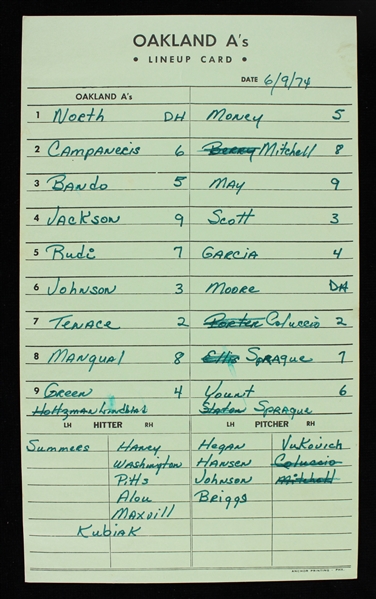 OAKLAND A's
• LINEUP CARD •
DATE 6/9/74
OAKLAND A's
1 North DH Money 5
2 Campaneris 6 Berry Mitchell 8
3 Bando 5 May 9
4 Jackson 9 Scott 3
5 Rudi 7 Garcia 4
6 Johnson 3 Moore DH
7 Tenace 2 Porter Coluccio 2
8 Mangual 8 Ellis Sprague 7
9 Green 4 Yount 6
Holtzman Lindblad Slaton Sprague
LH HITTER RH LH PITCHER RH
Summers Haney Hegan Vukovich
Washington Hansen Coluccio
Pitts Johnson Mitchell
Alou Briggs
Maxvill
Kubiak
ANCHOR PRINTING